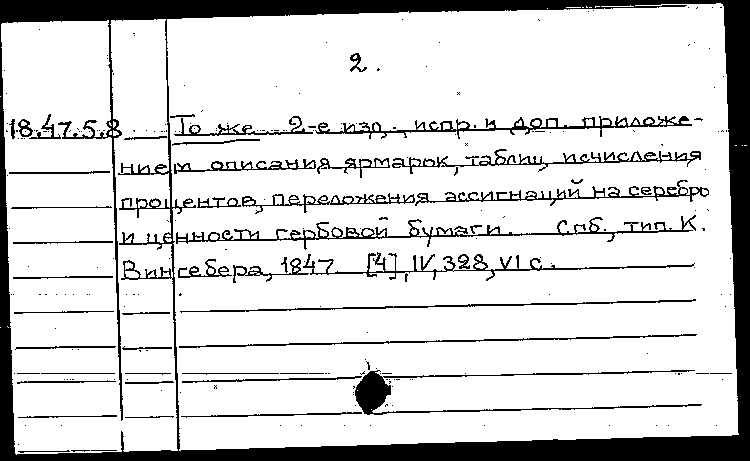 2.
18.47.5.8 То же 2-е изд., испр. и доп. приложе-
нием описания ярмарок, таблиц, исчисления
процентов, переложения ассигнаций на серебро
и ценности гербовой бумаги. Спб., тип. К.
Вингебера, 1847 [4], IV, 328, VI с.